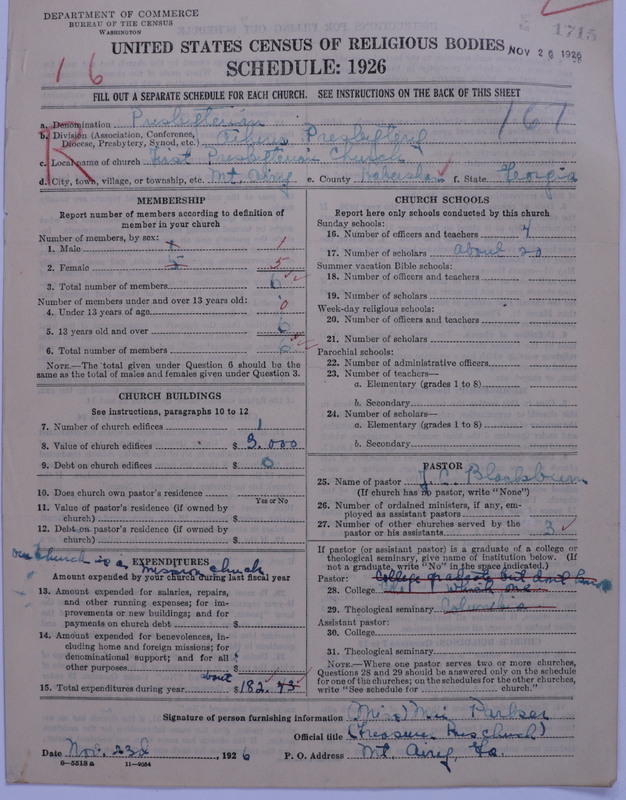 DEPARTMENT OF COMMERCE
BUREAU OF THE CENSUS
WASHINGTON
1715
UNITED STATES CENSUS OF RELIGIOUS BODIES
NOV 26 1926
SCHEDULE: 1926
16
FILL OUT A SEPARATE SCHEDULE FOR EACH CHURCH. SEE INSTRUCTIONS ON THE BACK OF THIS SHEET
167
R
a. Denomination Presbyterian
b. Division (Association, Conference,
Diocese, Presbytery, Synod, etc.) Athens Presbytery
c. Local name of church First Presbyterian Church
d. City, town, village, or township, etc. Mt. Airy e. County Habersham f. State Georgia
MEMBERSHIP
Report number of members according to definition of
member in your church
Number of members, by sex:
1. Male 1 1
2. Female 5 5
3. Total number of members 6
Number of members under and over 13 years old:
4. Under 13 years of age 0
5. 13 years old and over 6
6. Total number of members 6
NOTE.—The total given under Question 6 should be
same as the total of males and females given under Question 3.
CHURCH BUILDINGS
See instructions, paragraphs 10 to 12
7. Number of church edifices 1
8. Value of church edifices $ 3.000
9. Debt on church edifices $ 0
10. Does church own pastor's residence
Yes or No
11. Value of pastor's residence (if owned by
church) $
12. Debt on pastor's residence (if owned by
church) $
our Church is a mission church
EXPENDITURES
Amount expended by your church during last fiscal year
13. Amount expended for salaries, repairs,
and other running expenses; for im-
provements or new buildings; and for
payments on church debt $
14. Amount expended for benevolences, in-
cluding home and foreign missions; for
denominational support; and for all
other purposes $
about
15. Total expenditures during year $ 182.43
CHURCH SCHOOLS
Report here only schools conducted by this church
Sunday schools:
16. Number of officers and teachers 4
17. Number of scholars about 20
Summer vacation Bible schools:
18. Number of officers and teachers
19. Number of scholars
Week-day religious schools:
20. Number of officers and teachers
21. Number of scholars
Parochial schools:
22. Number of administrative officers
23. Number of teachers—
a. Elementary (grades 1 to 8)
b. Secondary
24. Number of scholars—
a. Elementary (grades 1 to 8)
b. Secondary
PASTOR
25. Name of pastor J. C. Blackburn
(If church has no pastor, write "None")
26. Number of ordained ministers, if any, em-
ployed as assistant pastors
27. Number of other churches served by the
pastor or his assistants 3
If pastor (or assistant pastor) is a graduate of a college or
theological seminary, give name of institution below. (If
not a graduate, write "No" in the space indicated.)
Pastor: College graduate but don't know
28. College which one
29. Theological seminary Columbia
Assistant pastor:
30. College
31. Theological seminary
NOTE.—Where one pastor serves two or more churches,
Questions 28 and 29 should be answered only on the schedule
for one of the churches; on the schedules for the other churches,
write "See schedule for church."
Signature of person furnishing information (Miss) Parker
Official title (Treasurer church)
Date Nov. 23d, 1926 P. O. Address Mt. Airy, Ga.
6-5513a 11-9054